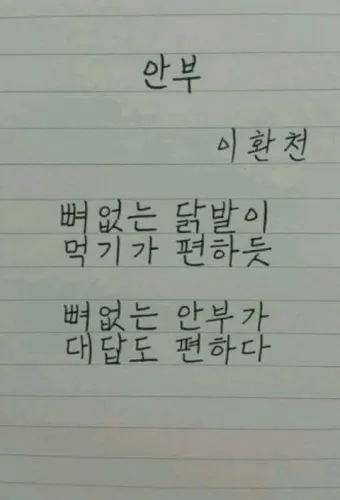 안부
이환천
뼈없는 닭발이
먹기가 편하듯
뼈없는 안부가
대답도 편하다